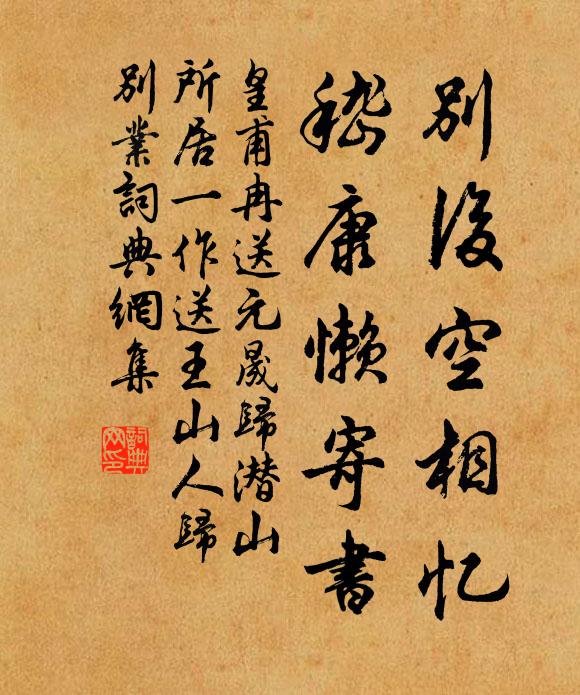 别後空相忆
嵇康懒寄書
皇甫冉送元晟歸潜山
所居一作送王山人歸
别業詞典網集
詞典
网印